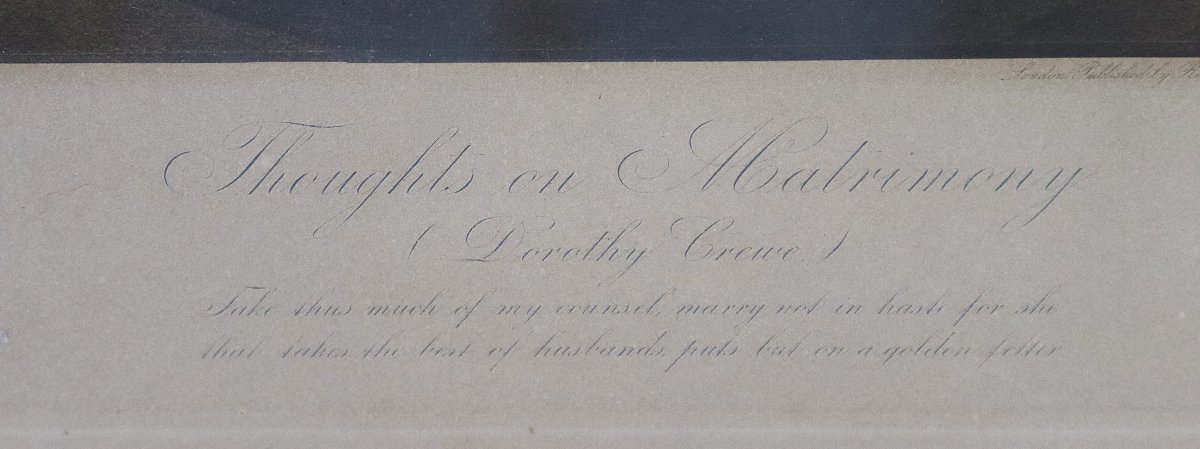 London, Published by
Thoughts on Matrimony
(Dorothy Crewe)
Take thus much of my counsel, marry not in haste for she
that takes the best of husbands, puts but on a golden fetter